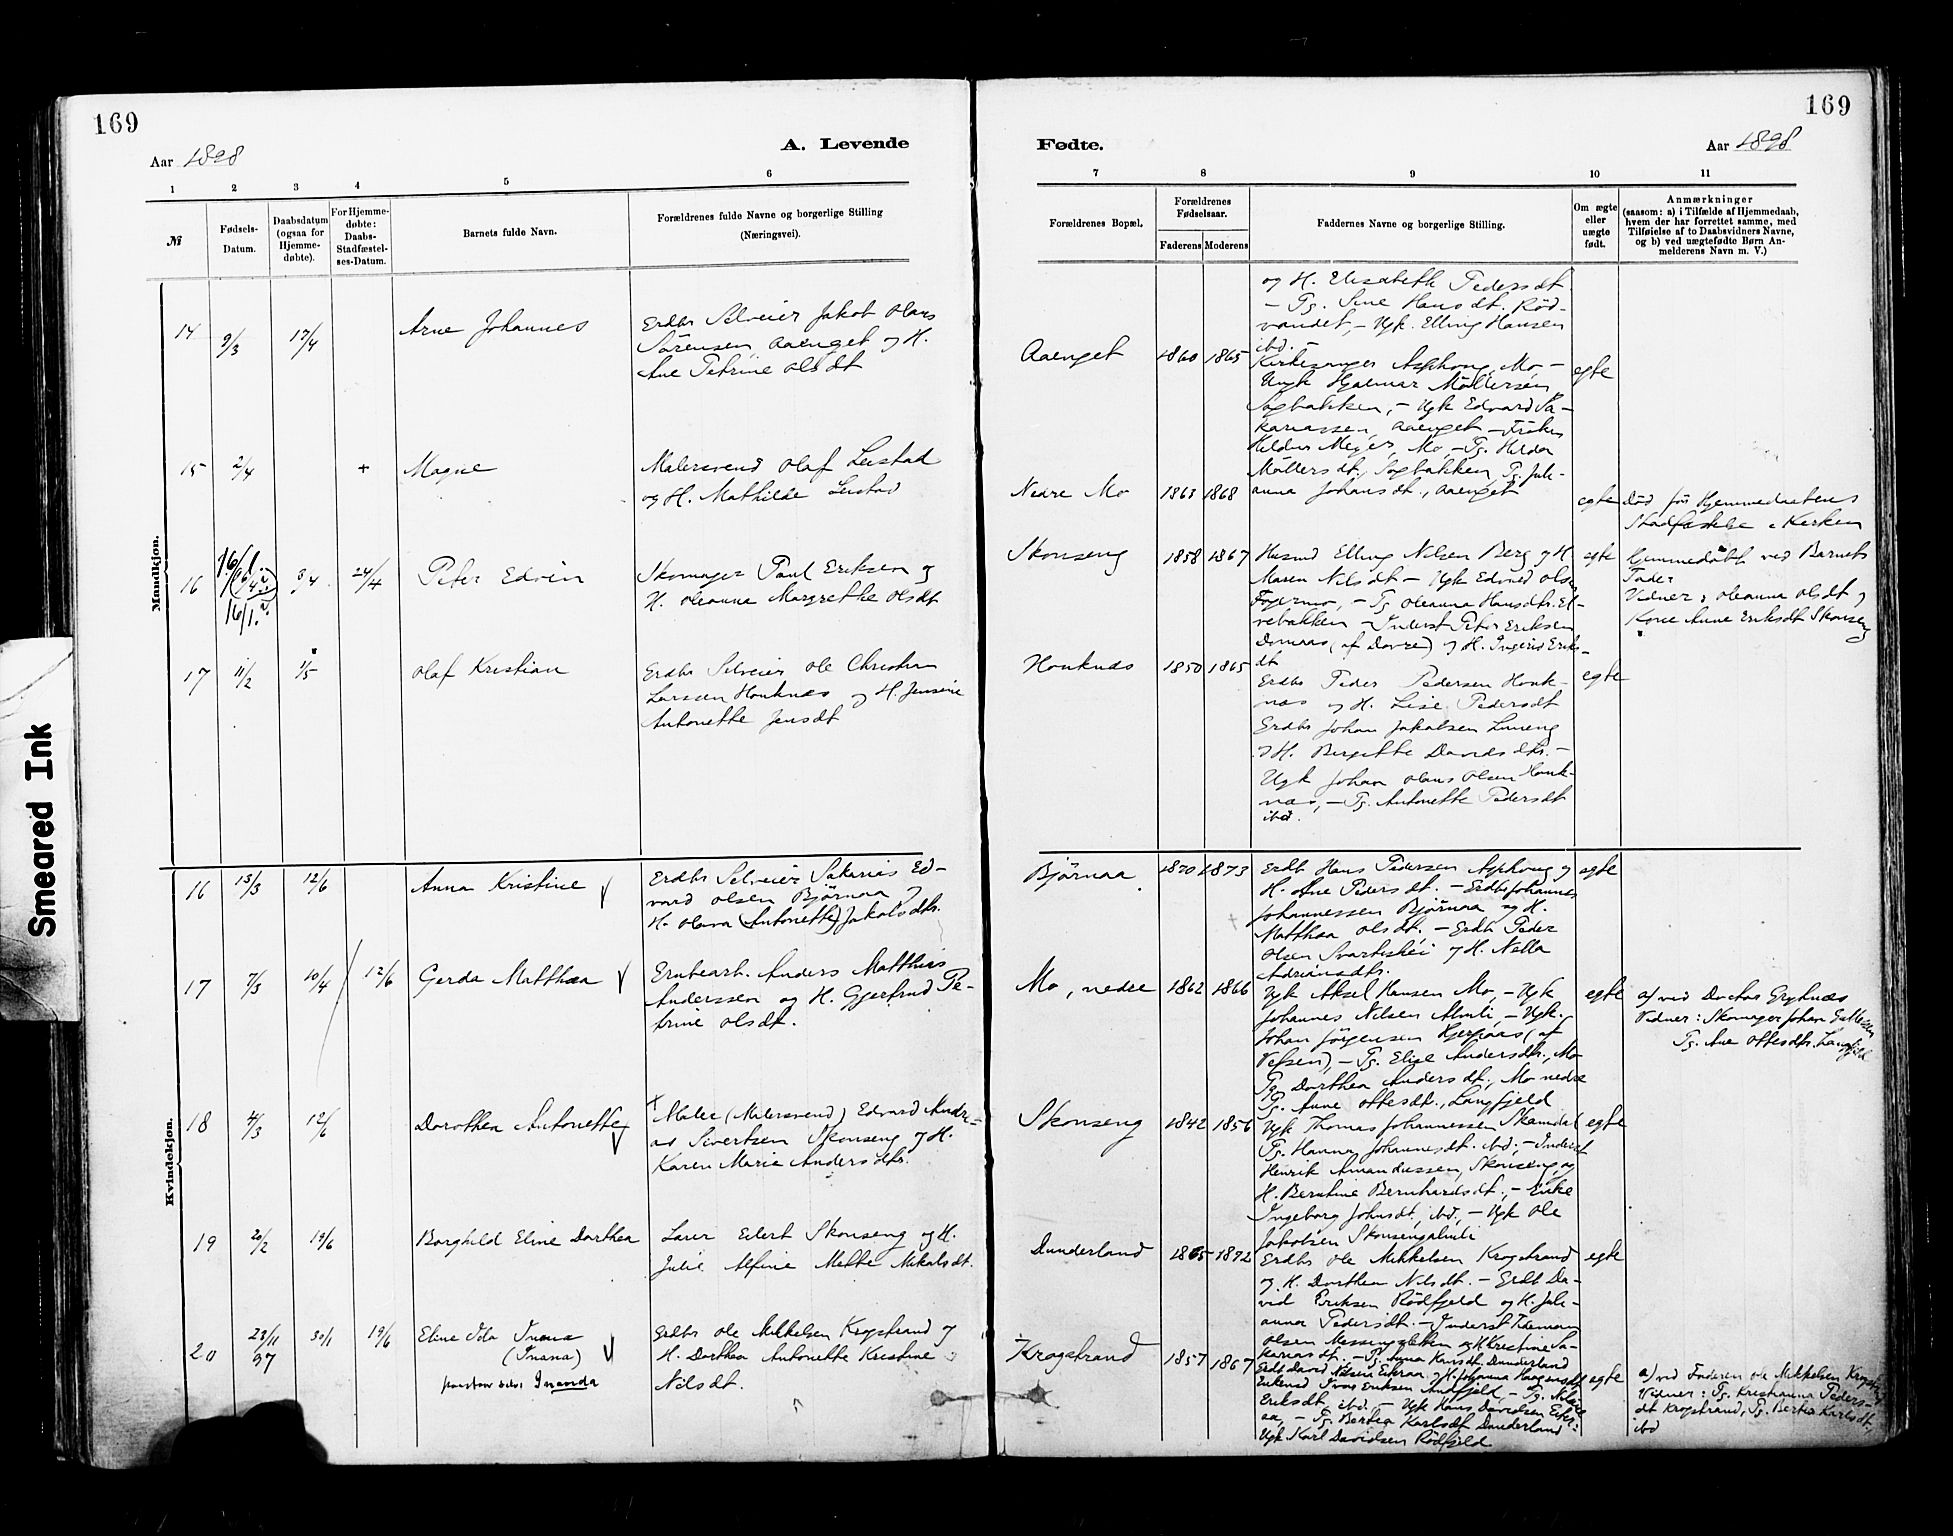 169
Aar 1898
A. Levende
1 2 3 4 5 6
№
Fødsels-
Datum.
Daabsdatum
(ogsaa for
Hjemme-
døbte).
For Hjemme-
døbte:
Daabs-
Stadfæstel-
ses-Datum.
Barnets fulde Navn.
Forældrenes fulde Navne og borgerlige Stilling
(Næringsvei).
Mandkjøn.
14 9/3 17/4 Arne Johannes
Erdbr Selveier Jakob Olaus
Sörensen Aaenget og H.
Ane Petrine Olsdt
15 2/4 + Magne
Malersvend Olaf Leistad
og H. Mathilde Leistad
16
16/1.
16/1.
3/4 24/4 Peter Edvin
Skomager Paul Eriksen og
H. Oleanna Margrethe Olsdt
17 11/2 1/5 Olaf Kristian
Erdbr Selveier Ole Christian
Larssen Houknes og H. Jensine
Antonette Jensdt
Kvindekjøn.
16 13/3 12/6 Anna Kristine
Erdbr Selveier Sakarias Ed-
vard Olsen Björnaa og
H. Olava (Antonette) Jakobsdtr.
17 7/3 10/4 12/6 Gerda Matthea
Erubearb. Anders Matthias
Anderssen og H. Gjertrud Pe-
trine Olsdt.
18 4/3 12/6 Dorothea Antonette
Maler (Malersvend) Edvard Andre-
as Sivertsen Skonseng og H.
Karen Marie Andersdtr.
19 20/2 19/6 Borghild Eline Dorthea
Lærer Edert Skonseng og H.
Julie Alfine Mette Mikalsdt.
20 23/11 97 30/1 19/6 Eline Ida Inana
(Inana)
Inanda
Erdbr Ole Mikkelsen Krogstrand og
H. Dorthea Antonette Kristine
Nilsdt.
169
Fødte.
Aar 1898
7 8 9 10 11
Forældrenes Bopæl.
Forældrenes
Fødselsaar.
Faderens Moderens
Faddernes Navne og borgerlige Stilling.
Om ægte
eller
uægte
født.
Anmærkninger
(saasom: a) i Tilfælde af Hjemmedaab,
hvem der har forrettet samme, med
Tilføielse af to Daabsvidners Navne,
og b) ved uægtefødte Børn An-
melderens Navn m. V.)
og H. Elisabeth Pedersdt
– Pg. Sine Hansdt. Röd-
vandet, – Ugk. Elling Hansen
ibd. –
Aaenget 1860 1865
Kirkesanger Asphoug, Mo –
Ungk Hjalmar Möllersen
Sagbakken, – Ugk Edvard Sa-
kariassen, Aaenget – Fröken
Helder Meyer, Mo, – Pg. Hilda
Möllersdt, Sagbakken, Pg. Juli-
anna Johansdt., Aaenget
egte
Nedre Mo 1863 1868 egte
Död för Hjemmedaabens
Stadfæstelse i Kirken
Skonseng 1858 1867
Husmd Elling Nilsen Berg og H.
Maren Nilsdt – Ugk Edvard Olsen
Fagermo, – Pg Oleanna Hansdtr. El-
vebakken – Inderst Peter Eriksen
Domaas (af Dovre) og H. Ingerid Eriks-
dt
egte
Hjemmedöbt ved Barnets
Fader
Vidner: Oleanna Olsdt og
Kone Anne Eriksdt Skonseng
Houknes 1850 1865
Erdbr Peder Pedersen Houk-
nes og H. Lise Pedersdt
Erdbr Johan Jakobsen Lineng
og H. Birgitte Davidsdtr. –
Ugk Johan Olaus Olsen Houk-
nes, – Pg. Antonette Pedersdt
ibd.
egte
Björnaa 1870 1873
Erdbr Hans Pedersen Asphoug og
H. Ane Pedersdt. – Erdbr Johannes
Johannessen Björnaa og H.
Matthea Olsdt. – Erdbr Peder
Olsen Svartishei og H. Nella
Adriansdtr.
egte
Mo, nedre 1862 1866
Ugk Aksel Hansen Mo, – Ugk
Johannes Nilsen Almli – Ugk.
Johan Jörgensen Hjerpaas (af
Vefsen), – Pg. Elise Andersdtr., Mo
Pg Dorthea Andersdt., Mo nedre
Pg. Anne Ottesdt., Langfjeld
egte
a) ved Doctor Grytnæs
Vidner: Skomager Johan
Pg. Ane Ottesdtr. Langfjeld
Skonseng 1842 1856
Ugk Thomas Johannessen Skamdal
Pg. Hanna Johannesdt. ibd; – Inderst
Henrik Amandussen, Skonseng, og
H. Berntine Bernhardsdt., – Enke
Ingeborg Johnsdt, ibd, – Ugk Ole
Jakobsen Skonsengalmli
egte
Dunderland 1865 1872
Erdbr Ole Mikkelsen Krogstrand
og H. Dorthea Nilsdt. – Erdbr Da-
vid Eriksen Rödfjeld og H. Juli-
anna Pedersdt. – Inderst Tidemann
Olsen Messingsletten og H Kristine Sa-
kariasdt. – Pg Anna Hansdt Dunderland
egte
Krogstrand 1857 1867
Erdb David Nilsen Eiteraa og H. Johanna Haagensdt
Enkemd Ivar Eriksen Andfjeld, – Pg. Nilsine
Eriksdt, ibd. – Ugk Hans Davidsen Eiter-
aa, – Pg. Bertea Karlsdt Dunderland
Ugk Karl Davidsen Rödfjeld
egte
a) ved Faderen Ole Mikkelsen Krogstrand
Vidner: Pg. Kristianna Peders-
dt Krogstrand, Pg. Bertea Karlsdt,
ibd
Smeared Ink